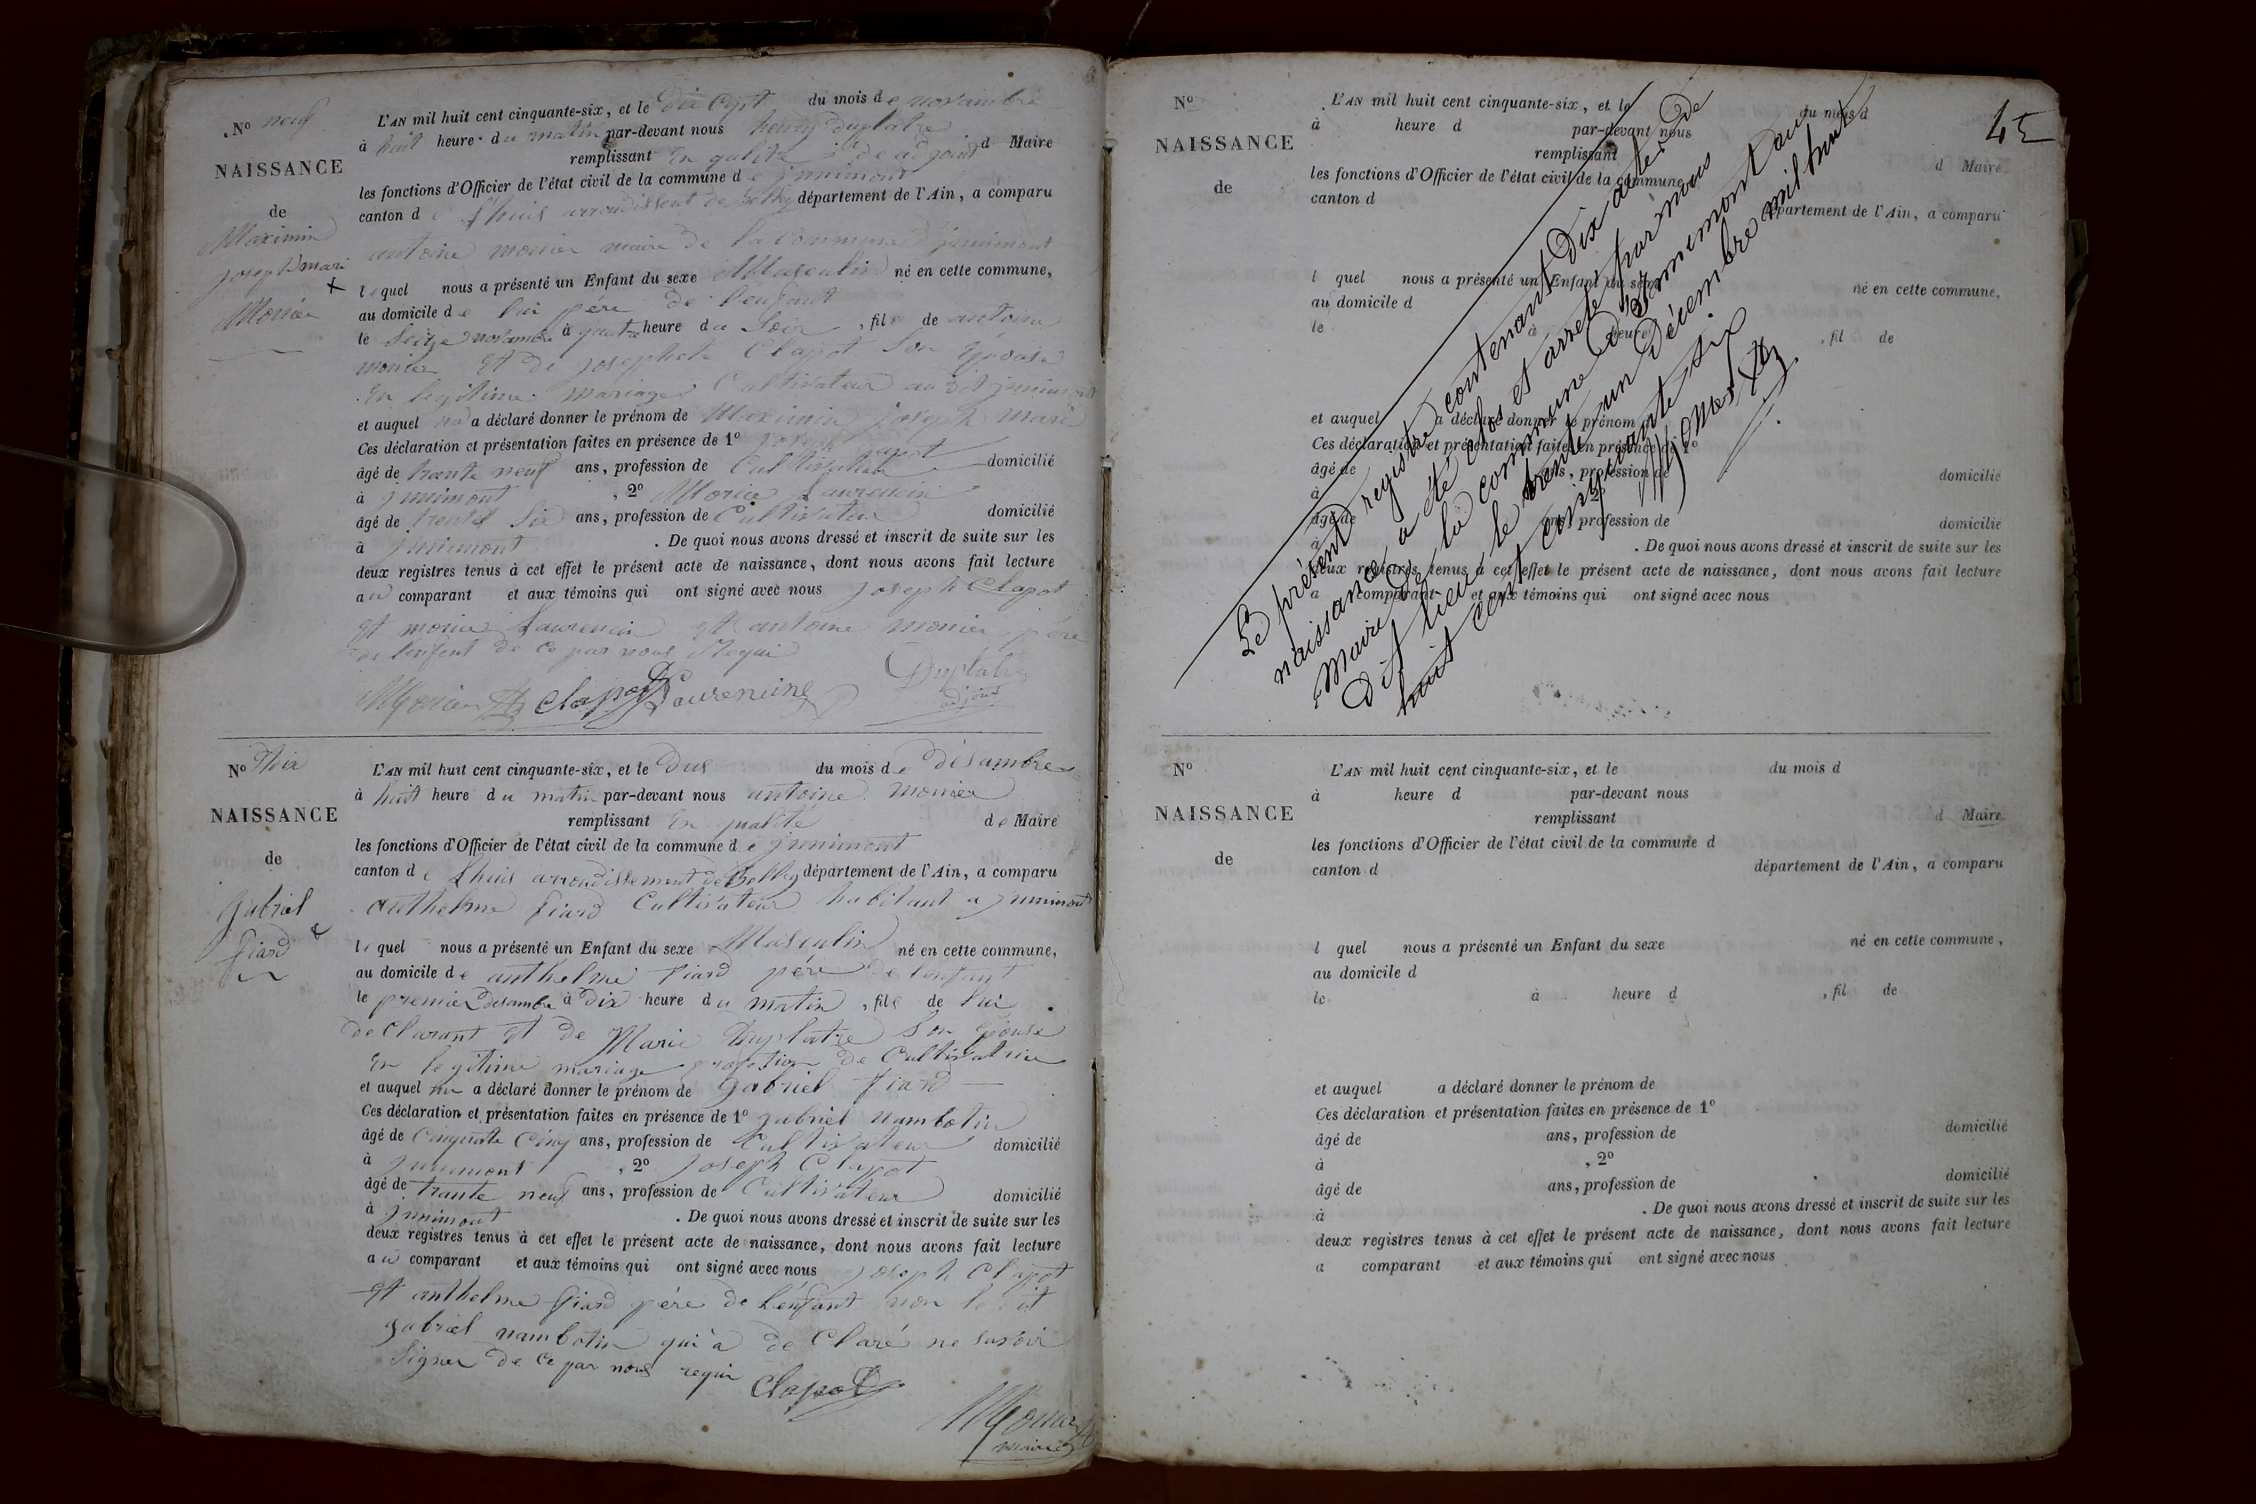 N° neuf
NAISSANCE
de
Maximin
joseph mari
Monier
L'AN mil huit cent cinquante-six, et le dix cept du mois de novambre
à huit heure du matin par-devant nous henry duplatre
remplissant en qalité de adjoint d Maire
les fonctions d'Officier de l'état civil de la commune de jnnimont
canton de Lhuis arrondissent de Belley département de l'Ain, a comparu
antoine monier maire de la commune jnnimont
lequel nous a présenté un Enfant du sexe Masculin né en cette commune,
au domicile de lui pére de l'enfant
le Seize novambre à quatre heure du Soir, fils de antoine
monier et de josephete Clapot Son épouse
En legitime mariage Cultivateur au dit jnnimont
et auquel a déclaré donner le prénom de Maximin joseph Marie
Ces déclaration et présentation faites en présence de 1° joseph Clapot
âgé de trante neuf ans, profession de Cultivateur domicilié
à jnnimont, 2° Monier Laurencin
âgé de trente Six ans, profession de Cultivateur domicilié
à jnnimont. De quoi nous avons dressé et inscrit de suite sur les
deux registres tenus à cet effet le présent acte de naissance, dont nous avons fait lecture
au comparant et aux témoins qui ont signé avec nous joseph Clapot
et monier Laurencin et antoine monier pére
de l'enfent de ce par nous Requi
Monier Clapot Laurencine Duplatre
adjoint
N° Dix
NAISSANCE
de
gabriel
fiard
L'AN mil huit cent cinquante-six, et le deus du mois de désambre
à huit heure du matin par-devant nous antoine monier
remplissant En qualité de Maire
les fonctions d'Officier de l'état civil de la commune de jnnimont
canton de Lhuis arrondissement de Belley département de l'Ain, a comparu
anthelme fiard Cultivateur habitant a jnnimont
lequel nous a présenté un Enfant du sexe Masculin né en cette commune,
au domicile de anthelme fiard pére de l'enfant
le premier desambre à dix heure du matin, fils de lui
declarant et de Marie Duplatre Son épouse
En legitime mariage profetion de Cultivatrice
et auquel a déclaré donner le prénom de gabriel fiard
Ces déclaration et présentation faites en présence de 1° gabriel nambotin
âgé de cinquante cinq ans, profession de Cultivateur domicilié
à jnnimont, 2° joseph Clapot
âgé de trante neuf ans, profession de Cultivateur domicilié
à jnnimont. De quoi nous avons dressé et inscrit de suite sur les
deux registres tenus à cet effet le présent acte de naissance, dont nous avons fait lecture
au comparant et aux témoins qui ont signé avec nous joseph Clapot
et anthelme fiard pére de l'enfant non le dit
gabriel nambotin qui a de Claré ne savoir
Signer de ce par nous requi
Clapot
Monier
maire
45
N°
NAISSANCE
de
L'AN mil huit cent cinquante-six, et le du mois d
à heure d par-devant nous
remplissant d Maire
les fonctions d'Officier de l'état civil de la commune
canton d département de l'Ain, a comparu
l quel nous a présenté un Enfant du sexe né en cette commune,
au domicile d
le à heure , fil de
et auquel a déclaré donner le prénom d
Ces déclaration et présentation faites en présence de 1°
âgé de ans, profession de domicilié
à 2°
âgé de ans, profession de domicilié
à . De quoi nous avons dressé et inscrit de suite sur les
deux registres tenus à cet effet le présent acte de naissance, dont nous avons fait lecture
a comparant et aux témoins qui ont signé avec nous
Le présent registre contenant Dix actes de
naissance a été clos et arreté par nous
Maire De la commune D'jnnimont au
Dit lieu le trente un Décembre mil
huit cent cinquante six
Monier
N°
NAISSANCE
de
L'AN mil huit cent cinquante-six, et le du mois d
à heure d par-devant nous
remplissant d Maire
les fonctions d'Officier de l'état civil de la commune d
canton d département de l'Ain, a comparu
l quel nous a présenté un Enfant du sexe né en cette commune,
au domicile d
le à heure d , fil de
et auquel a déclaré donner le prénom de
Ces déclaration et présentation faites en présence de 1°
âgé de ans, profession de domicilié
à , 2°
âgé de ans, profession de domicilié
à . De quoi nous avons dressé et inscrit de suite sur les
deux registres tenus à cet effet le présent acte de naissance, dont nous avons fait lecture
a comparant et aux témoins qui ont signé avec nous